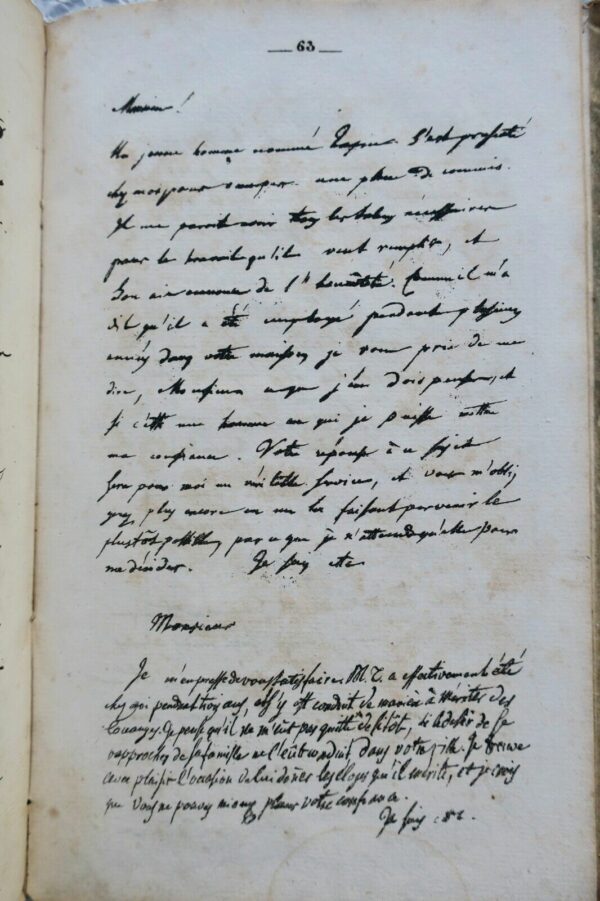 — 63 —
Monsieur!
Un jeune homme nommé s'est présenté
chez moi pour occuper une place de commis.
Il me paroit avoir tous les talens nécessaires
pour le travail qu'il veut remplir, et
son air annonce de l'honnêteté. Comme il m'a
dit qu'il a été employé pendant plusieurs
années dans votre maison, je vous prie de me
dire, Monsieur ce que j'en dois penser, et
si c'est un homme en qui je puisse mettre
ma confiance. Votre réponse à ce sujet
sera pour moi un véritable service, et vous m'obli,
gerez plus encore en me la faisant parvenir le
plustôt possible, parce que je n'attends qu'elle pour
me décider. Je suis etc
Monsieur
Je m'empresse de vous satisfaire. M. T. a effectivement été
chez moi pendant trois ans, et s'y est conduit de manière à mériter des
louanges. Je pense qu'il ne m'eut pas quitté de sitôt, si le désir de se
rapprocher de sa famille ne l'eût conduit dans votre ville. Je trouve
avec plaisir l'occasion de lui donner les éloges qu'il mérite, et je crois
que vous ne pouvez mieux placer votre confiance.
Je suis &c.